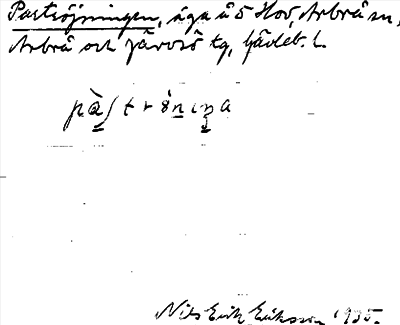 Partsöjningen, äga å 5 Hov, Arbrå sn,
Arbrå och Järvsö tg, Gävleb. l.
Nils Erik Eriksson 1935.